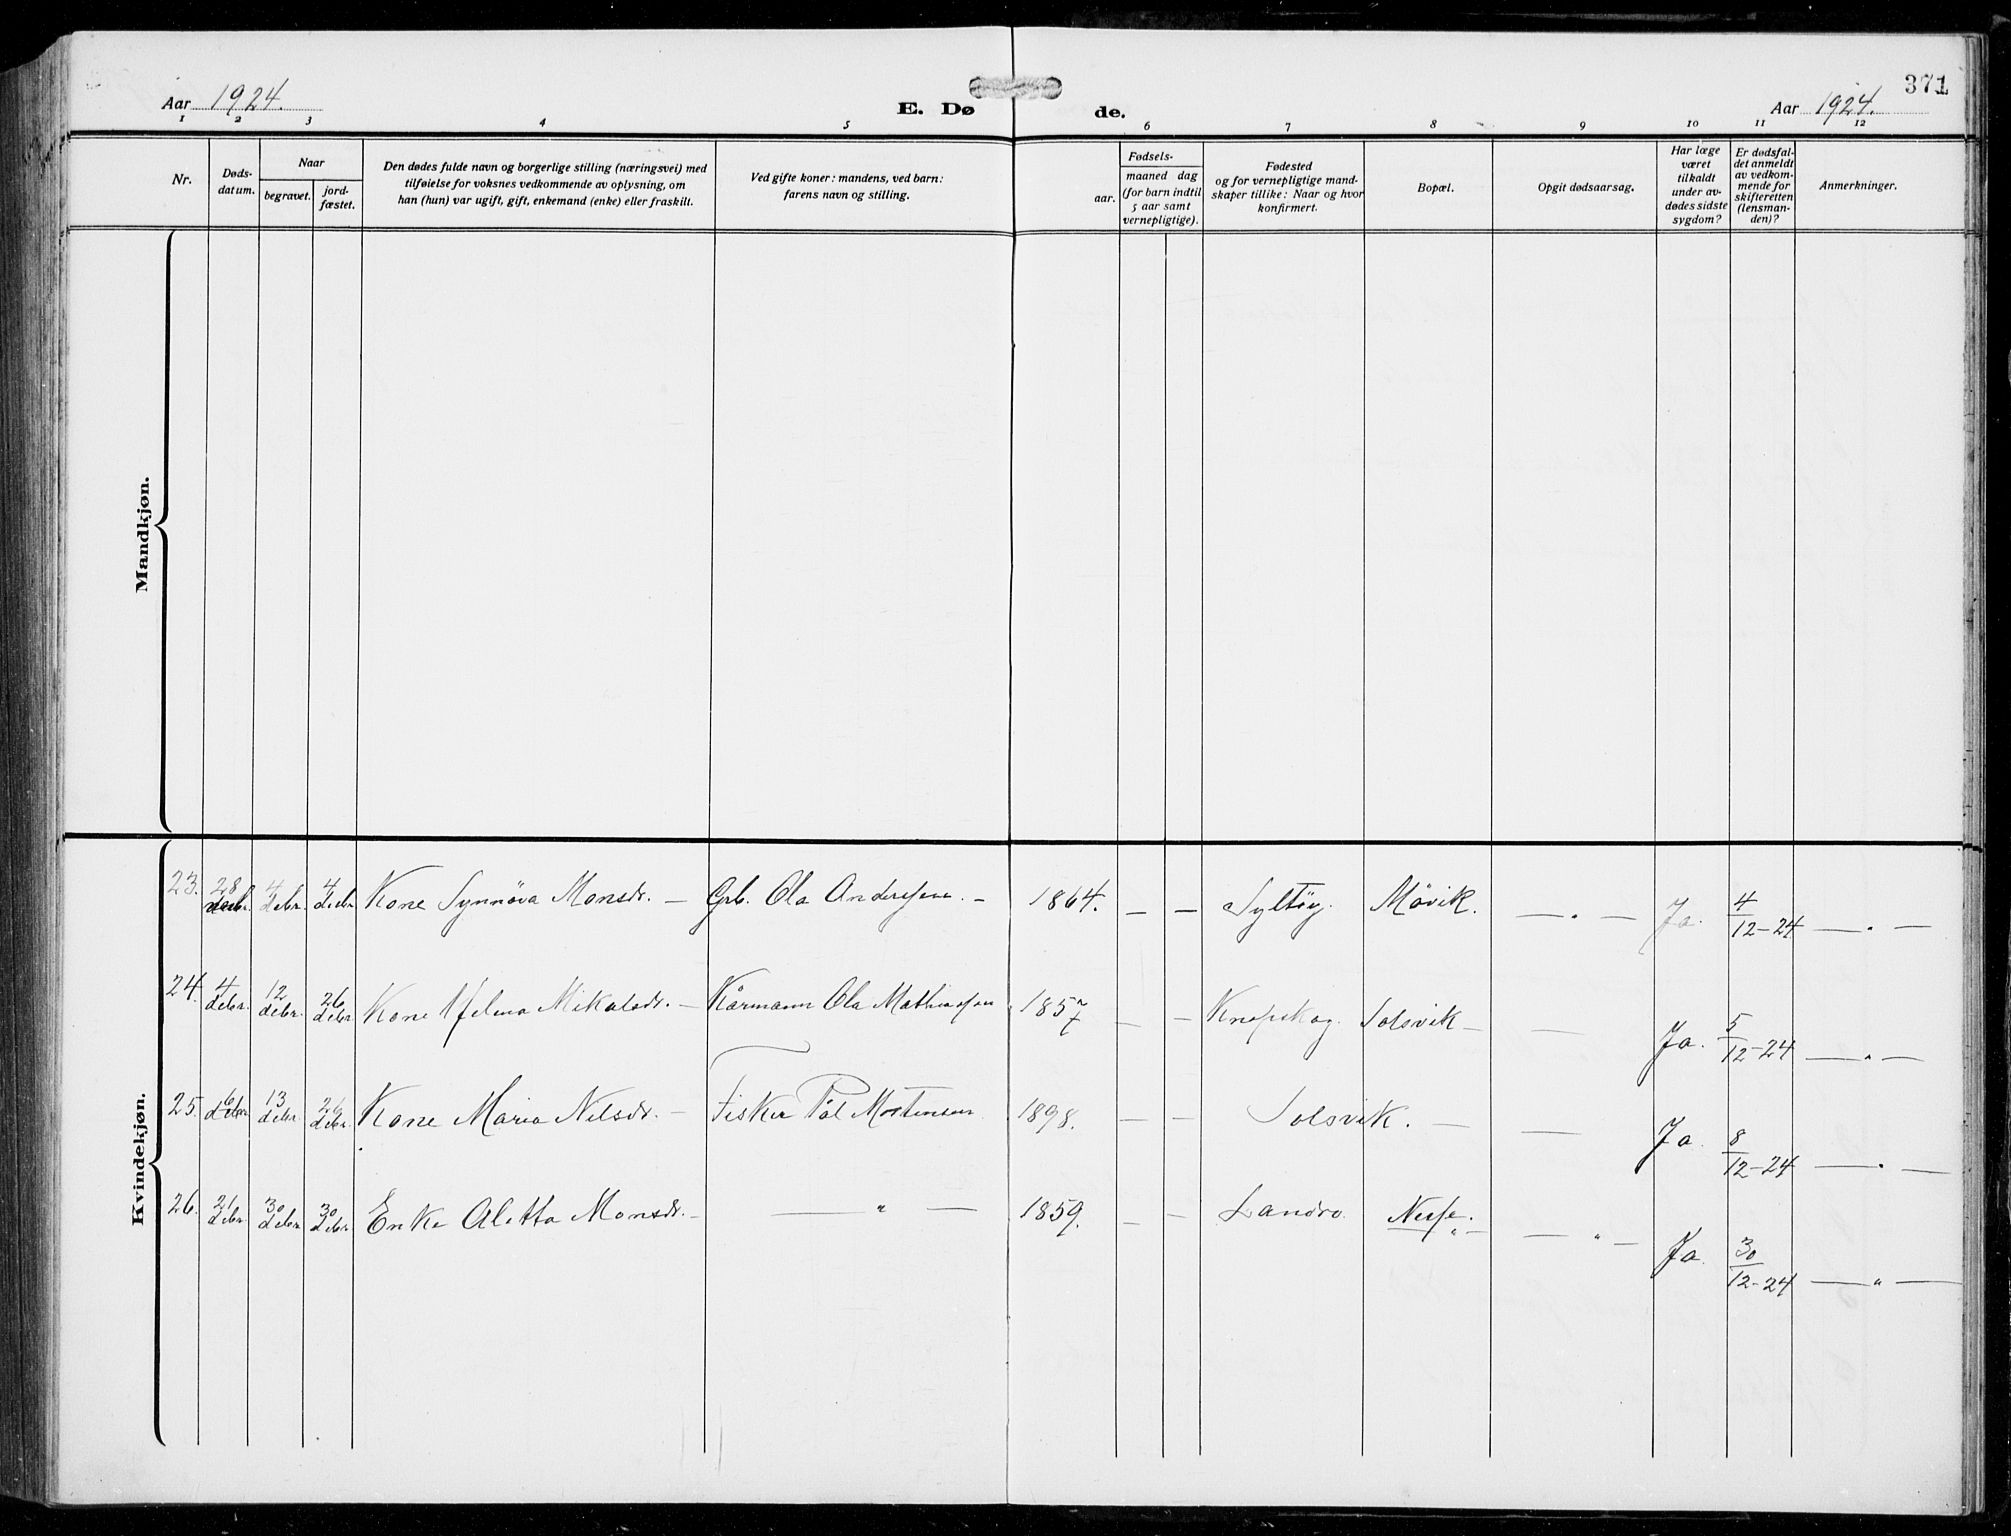 371
Aar 1924.
E. Dø de.
Aar 1924.
1 2 3 4 5 6 7 8 9 10 11 12
Nr.
Døds-
datum.
Naar
begravet.
jord-
fæstet.
Den dødes fulde navn og borgerlige stilling (næringsvei) med
tilføielse for voksnes vedkommende av oplysning, om
han (hun) var ugift, gift, enkemand (enke) eller fraskilt.
Ved gifte koner: mandens, ved barn:
farens navn og stilling.
Fødsels-
aar.
maaned dag
(for barn indtil
5 aar samt
vernepligtige).
Fødested
og for vernepligtige mand-
skaper tillike: Naar og hvor
konfirmert.
Bopæl.
Opgit dødsaarsag.
Har læge
været
tilkaldt
under av-
dødes sidste
sygdom?
Er dødsfal-
det anmeldt
av vedkom-
mende for
skifteretten
(lensman-
den)?
Anmerkninger.
Mandkjøn.
Kvindekjøn.
23. 28 4 debr. 4 debr. Kone Synnöva Monsdr. — Grb. Ola Anderssen. — 1864. — — Syltöy. Mövik. — " — Ja. 4/12-24 — " —
24. 4 debr. 12 debr. 26 debr. Kone Mikalsdr. — Kårmann Ola Mathiassen 1857 — — Knapskog. Solsvik — — Ja. 5/12-24 — " —
25. 6 debr. 13 debr. 26 debr. Kone Maria Nilsdr. — Fisker Pål Mortensen 1898. — — Solsvik. — — Ja. 8/12-24 — " —
26. 21 debr. 30 debr. 30 debr. Enke Aletta Monsdr. — — " — 1859. — — Landro Nesse. — " — Ja 30/12-24 — " —